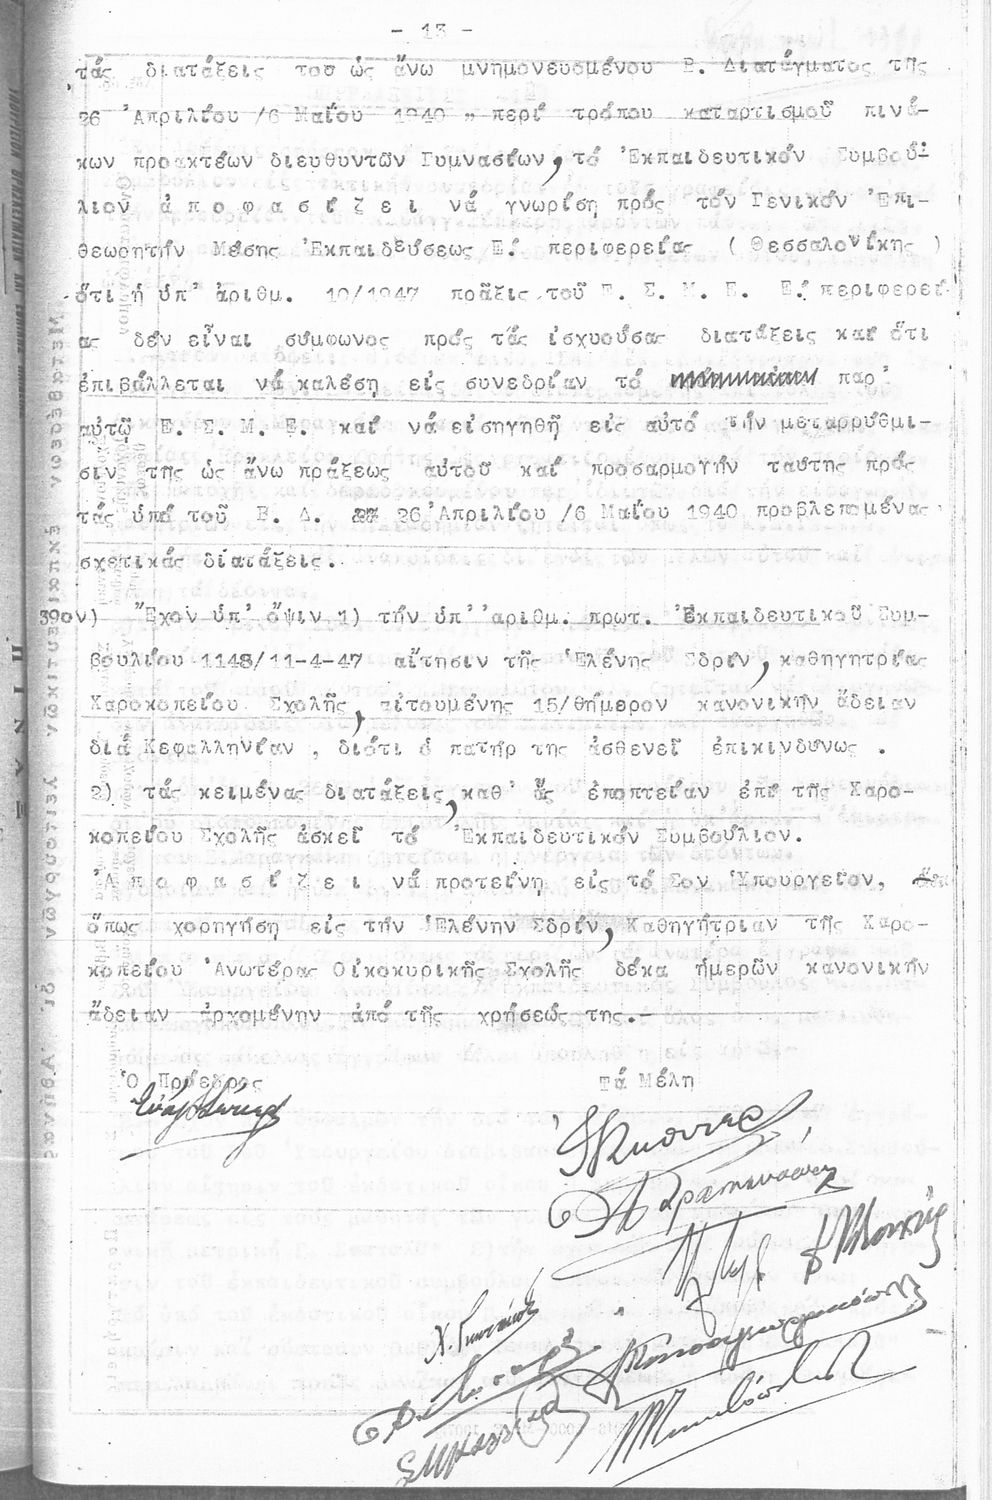 - 13 -
τάς διατάξεις του ὡς ἄνω μνημονευομένου Β. Διατάγματος τῆς
26 Ἀπριλίου /6 Μαΐου 1940 " περί τρόπου καταρτισμοῦ πινά-
κων προακτέων διευθυντῶν Γυμνασίων, τό Ἐκπαιδευτικόν Συμβού-
λιον ἀ π ο φ α σ ί ζ ε ι νά γνωρίση πρός τόν Γενικόν Ἐπι-
θεωρητήν Μέσης Ἐκπαιδεύσεως Ε. περιφερείας ( Θεσσαλονίκης )
ὅτι ἡ ὑπ' ἀριθμ. 10/1947 πρᾶξις τοῦ Ε. Σ. Μ. Ε. Ε. περιφερεί-
ας δέν εἶναι σύμφωνος πρός τάς ἰσχυούσας διατάξεις καί ὅτι
ἐπιβάλλεται νά καλέση εἰς συνεδρίαν τό παρ'
αὐτῷ Ε. Σ. Μ. Ε. καί νά εἰσηγηθῆ εἰς αὐτό τήν μεταρρύθμι-
σιν τῆς ὡς ἄνω πράξεως αὐτοῦ καί προσαρμογήν ταύτης πρός
τάς ὑπό τοῦ Β. Δ. 26 Ἀπριλίου /6 Μαΐου 1940 προβλεπομένας
σχετικάς διατάξεις.
39ον) Ἔχον ὑπ' ὄψιν 1) τήν ὑπ' ἀριθμ. πρωτ. Ἐκπαιδευτικοῦ Συμ-
βουλίου 1148/11-4-47 αἴτησιν τῆς Ἑλένης Σδρίν, καθηγητρίας
Χαροκοπείου Σχολῆς, αἰτουμένης 15/θήμερον κανονικήν ἄδειαν
διά Κεφαλληνίαν , διότι ὁ πατήρ της ἀσθενεῖ ἐπικινδύνως .
2) τάς κειμένας διατάξεις, καθ' ἅς ἐποπτείαν ἐπί τῆς Χαρο-
κοπείου Σχολῆς ἀσκεῖ τό Ἐκπαιδευτικόν Συμβούλιον.
Ἀ π ο φ α σ ί ζ ε ι νά προτείνη εἰς τό Σον Ὑπουργεῖον,
ὅπως χορηγήση εἰς τήν Ἑλένην Σδρίν, Καθηγήτριαν τῆς Χαρο-
κοπείου Ἀνωτέρας Οἰκοκυρικῆς Σχολῆς δέκα ἡμερῶν κανονικήν
ἄδειαν ἀρχομένην ἀπό τῆς χρήσεώς της.-
Ὁ Πρόεδρος Τά Μέλη